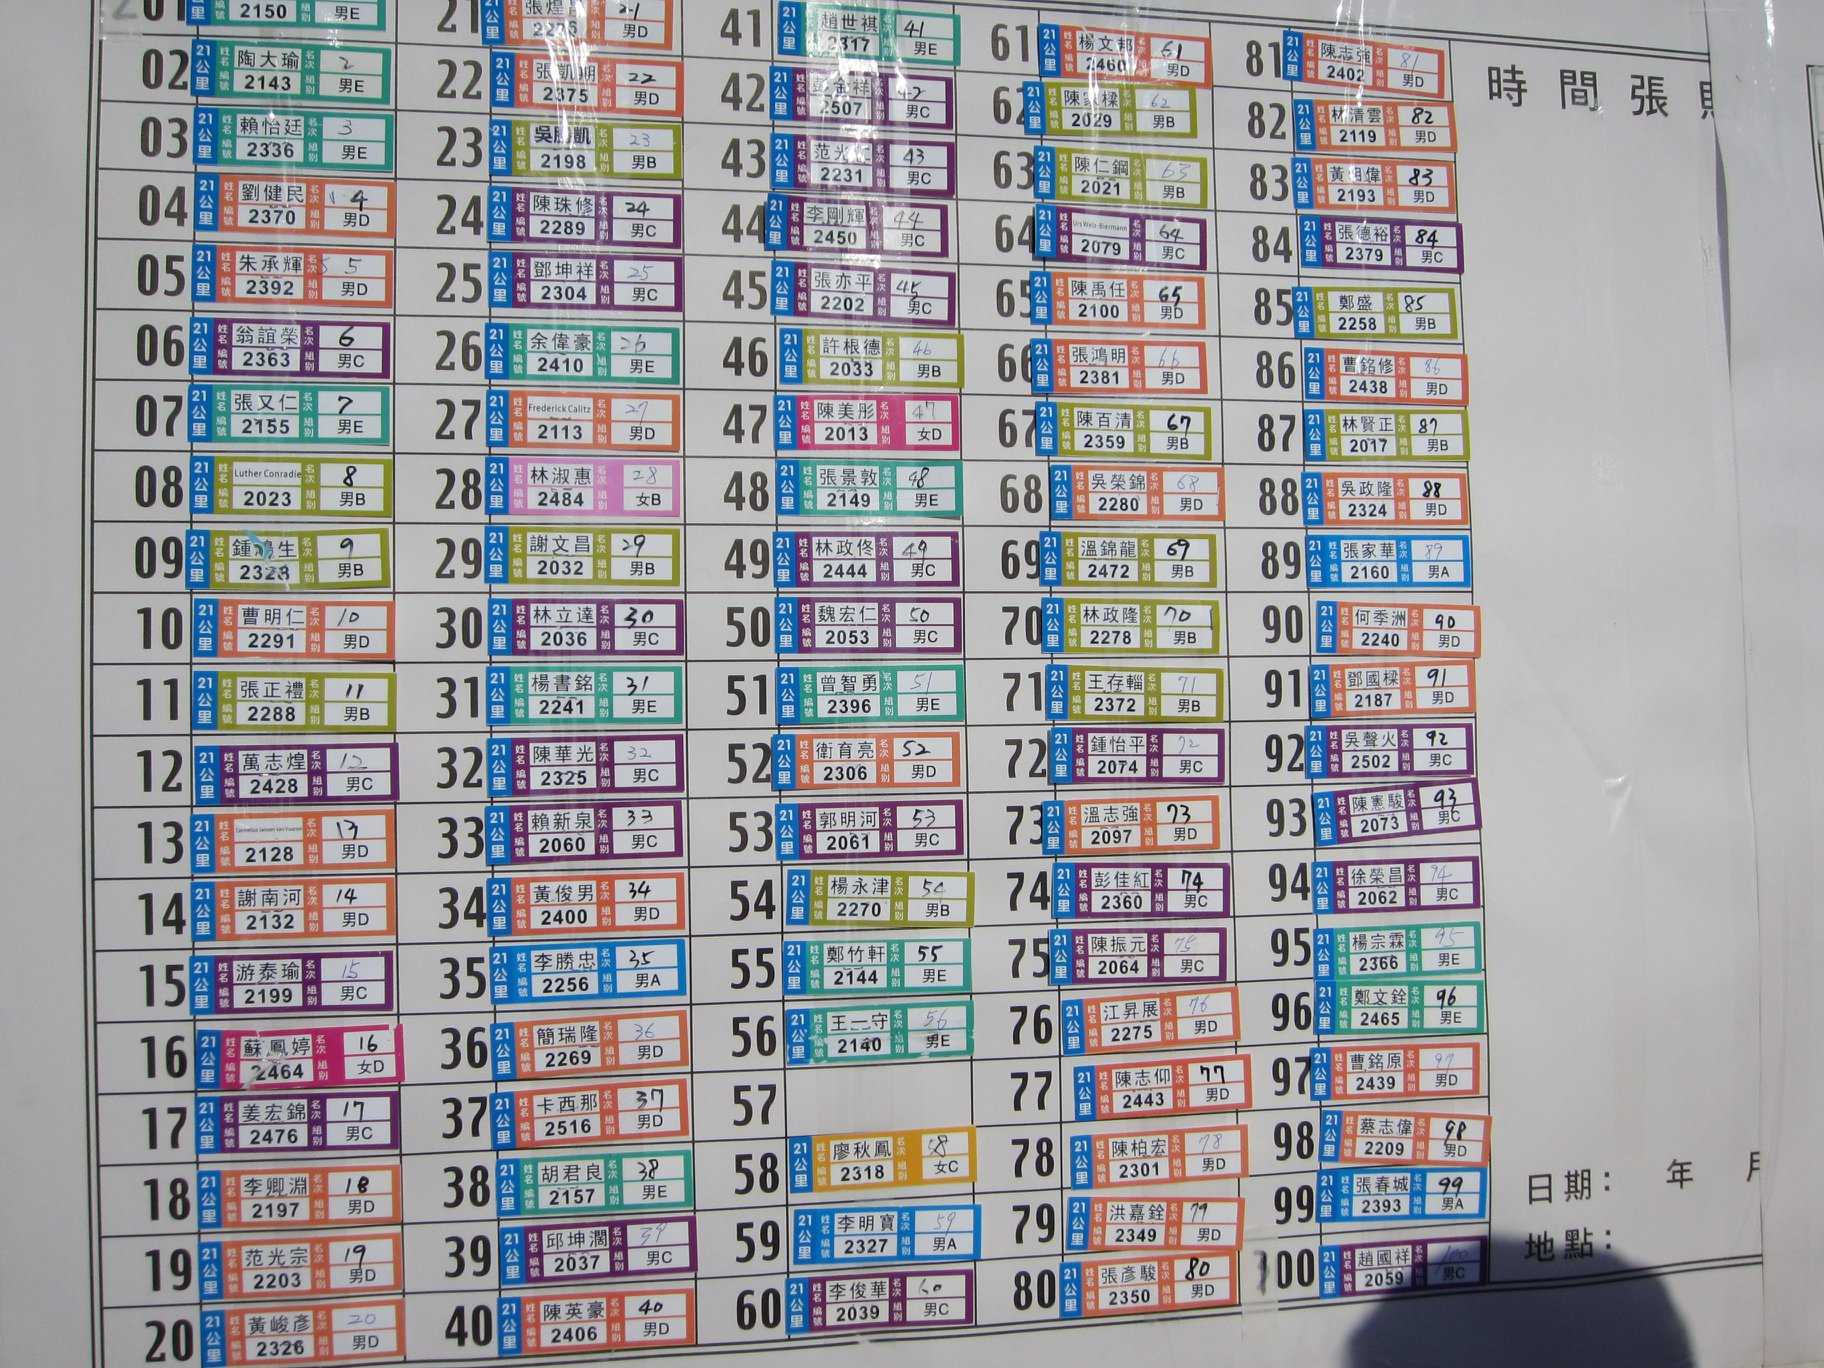 01 21公里 編號 2150 組別 男E
02 21公里 姓名 陶大瑜 名次 2 編號 2143 組別 男E
03 21公里 姓名 賴怡廷 名次 3 編號 2336 組別 男E
04 21公里 姓名 劉健民 名次 4 編號 2370 組別 男D
05 21公里 姓名 朱承輝 名次 5 編號 2392 組別 男D
06 21公里 姓名 翁誼榮 名次 6 編號 2363 組別 男C
07 21公里 姓名 張又仁 名次 7 編號 2155 組別 男E
08 21公里 姓名 Luther Conradie 名次 8 編號 2023 組別 男B
09 21公里 姓名 鍾鴻生 名次 9 編號 2328 組別 男B
10 21公里 姓名 曹明仁 名次 10 編號 2291 組別 男D
11 21公里 姓名 張正禮 名次 11 編號 2288 組別 男B
12 21公里 姓名 萬志煌 名次 12 編號 2428 組別 男C
13 21公里 姓名 名次 13 編號 2128 組別 男D
14 21公里 姓名 謝南河 名次 14 編號 2132 組別 男D
15 21公里 姓名 游泰瑜 名次 15 編號 2199 組別 男C
16 21公里 姓名 蘇鳳婷 名次 16 編號 2464 組別 女D
17 21公里 姓名 姜宏錦 名次 17 編號 2476 組別 男C
18 21公里 姓名 李卿淵 名次 18 編號 2197 組別 男D
19 21公里 姓名 范光宗 名次 19 編號 2203 組別 男D
20 21公里 姓名 黃峻彥 名次 20 編號 2326 組別 男D
21 21公里 名次 21 編號 組別 男D
22 21公里 姓名 名次 22 編號 2375 組別 男D
23 21公里 姓名 吳勝凱 名次 23 編號 2198 組別 男B
24 21公里 姓名 陳珠修 名次 24 編號 2289 組別 男C
25 21公里 姓名 鄧坤祥 名次 25 編號 2304 組別 男C
26 21公里 姓名 余偉豪 名次 26 編號 2410 組別 男E
27 21公里 姓名 Frederick Calitz 名次 27 編號 2113 組別 男D
28 21公里 姓名 林淑惠 名次 28 編號 2484 組別 女B
29 21公里 姓名 謝文昌 名次 29 編號 2032 組別 男B
30 21公里 姓名 林立達 名次 30 編號 2036 組別 男C
31 21公里 姓名 楊書銘 名次 31 編號 2241 組別 男E
32 21公里 姓名 陳華光 名次 32 編號 2325 組別 男C
33 21公里 姓名 賴新泉 名次 33 編號 2060 組別 男C
34 21公里 姓名 黃俊男 名次 34 編號 2400 組別 男D
35 21公里 姓名 李勝忠 名次 35 編號 2256 組別 男A
36 21公里 姓名 簡瑞隆 名次 36 編號 2269 組別 男D
37 21公里 姓名 卡西那 名次 37 編號 2516 組別 男D
38 21公里 姓名 胡君良 名次 38 編號 2157 組別 男E
39 21公里 姓名 邱坤濶 名次 39 編號 2037 組別 男C
40 21公里 姓名 陳英豪 名次 40 編號 2406 組別 男D
41 21公里 姓名 趙世祺 名次 41 編號 2317 組別 男E
42 21公里 姓名 彭金祥 名次 42 編號 2507 組別 男C
43 21公里 姓名 名次 43 編號 2231 組別 男C
44 21公里 姓名 李剛輝 名次 44 編號 2450 組別 男C
45 21公里 姓名 張亦平 名次 45 編號 2202 組別 男C
46 21公里 姓名 許根德 名次 46 編號 2033 組別 男B
47 21公里 姓名 陳美彤 名次 47 編號 2013 組別 女D
48 21公里 姓名 張景敦 名次 48 編號 2149 組別 男E
49 21公里 姓名 林政佟 名次 49 編號 2444 組別 男C
50 21公里 姓名 魏宏仁 名次 50 編號 2053 組別 男C
51 21公里 姓名 曾智勇 名次 51 編號 2396 組別 男E
52 21公里 姓名 衛育亮 名次 52 編號 2306 組別 男D
53 21公里 姓名 郭明河 名次 53 編號 2061 組別 男C
54 21公里 姓名 楊永津 名次 54 編號 2270 組別 男B
55 21公里 姓名 鄭竹軒 名次 55 編號 2144 組別 男E
56 21公里 姓名 王一守 名次 56 編號 2140 組別 男E
57
58 21公里 姓名 廖秋鳳 名次 58 編號 2318 組別 女C
59 21公里 姓名 李明寶 名次 59 編號 2327 組別 男A
60 21公里 姓名 李俊華 名次 60 編號 2039 組別 男C
61 21公里 姓名 楊文邦 名次 61 編號 2460 組別 男D
62 21公里 姓名 陳家樑 名次 62 編號 2029 組別 男B
63 21公里 姓名 陳仁鋼 名次 63 編號 2021 組別 男B
64 21公里 姓名 Urs Welz-Biermann 名次 64 編號 2079 組別 男C
65 21公里 姓名 陳禹任 名次 65 編號 2100 組別 男D
66 21公里 姓名 張鴻明 名次 66 編號 2381 組別 男D
67 21公里 姓名 陳百清 名次 67 編號 2359 組別 男B
68 21公里 姓名 吳榮錦 名次 68 編號 2280 組別 男D
69 21公里 姓名 溫錦龍 名次 69 編號 2472 組別 男B
70 21公里 姓名 林政隆 名次 70 編號 2278 組別 男B
71 21公里 姓名 王存輜 名次 71 編號 2372 組別 男B
72 21公里 姓名 鍾怡平 名次 72 編號 2074 組別 男C
73 21公里 姓名 溫志強 名次 73 編號 2097 組別 男D
74 21公里 姓名 彭佳紅 名次 74 編號 2360 組別 男C
75 21公里 姓名 陳振元 名次 75 編號 2064 組別 男C
76 21公里 姓名 江昇展 名次 76 編號 2275 組別 男D
77 21公里 姓名 陳志仰 名次 77 編號 2443 組別 男D
78 21公里 姓名 陳柏宏 名次 78 編號 2301 組別 男D
79 21公里 姓名 洪嘉銓 名次 79 編號 2349 組別 男D
80 21公里 姓名 張彥駿 名次 80 編號 2350 組別 男D
81 21公里 姓名 陳志強 名次 81 編號 2402 組別 男D
82 21公里 姓名 林清雲 名次 82 編號 2119 組別 男D
83 21公里 姓名 名次 83 編號 2193 組別 男D
84 21公里 姓名 張德裕 名次 84 編號 2379 組別 男C
85 21公里 姓名 鄭盛 名次 85 編號 2258 組別 男B
86 21公里 姓名 曹銘修 名次 86 編號 2438 組別 男D
87 21公里 姓名 林賢正 名次 87 編號 2017 組別 男B
88 21公里 姓名 吳政隆 名次 88 編號 2324 組別 男D
89 21公里 姓名 張家華 名次 89 編號 2160 組別 男A
90 21公里 姓名 何季洲 名次 90 編號 2240 組別 男D
91 21公里 姓名 鄧國樑 名次 91 編號 2187 組別 男D
92 21公里 姓名 吳聲火 名次 92 編號 2502 組別 男C
93 21公里 姓名 陳憲駿 名次 93 編號 2073 組別 男C
94 21公里 姓名 徐榮昌 名次 94 編號 2062 組別 男C
95 21公里 姓名 楊宗霖 名次 95 編號 2366 組別 男E
96 21公里 姓名 鄭文銓 名次 96 編號 2465 組別 男E
97 21公里 姓名 曹銘原 名次 97 編號 2439 組別 男D
98 21公里 姓名 蔡志偉 名次 98 編號 2209 組別 男D
99 21公里 姓名 張春城 名次 99 編號 2393 組別 男A
100 21公里 姓名 趙國祥 名次 100 編號 2059 組別 男C
時間張
日期： 年 月
地點：